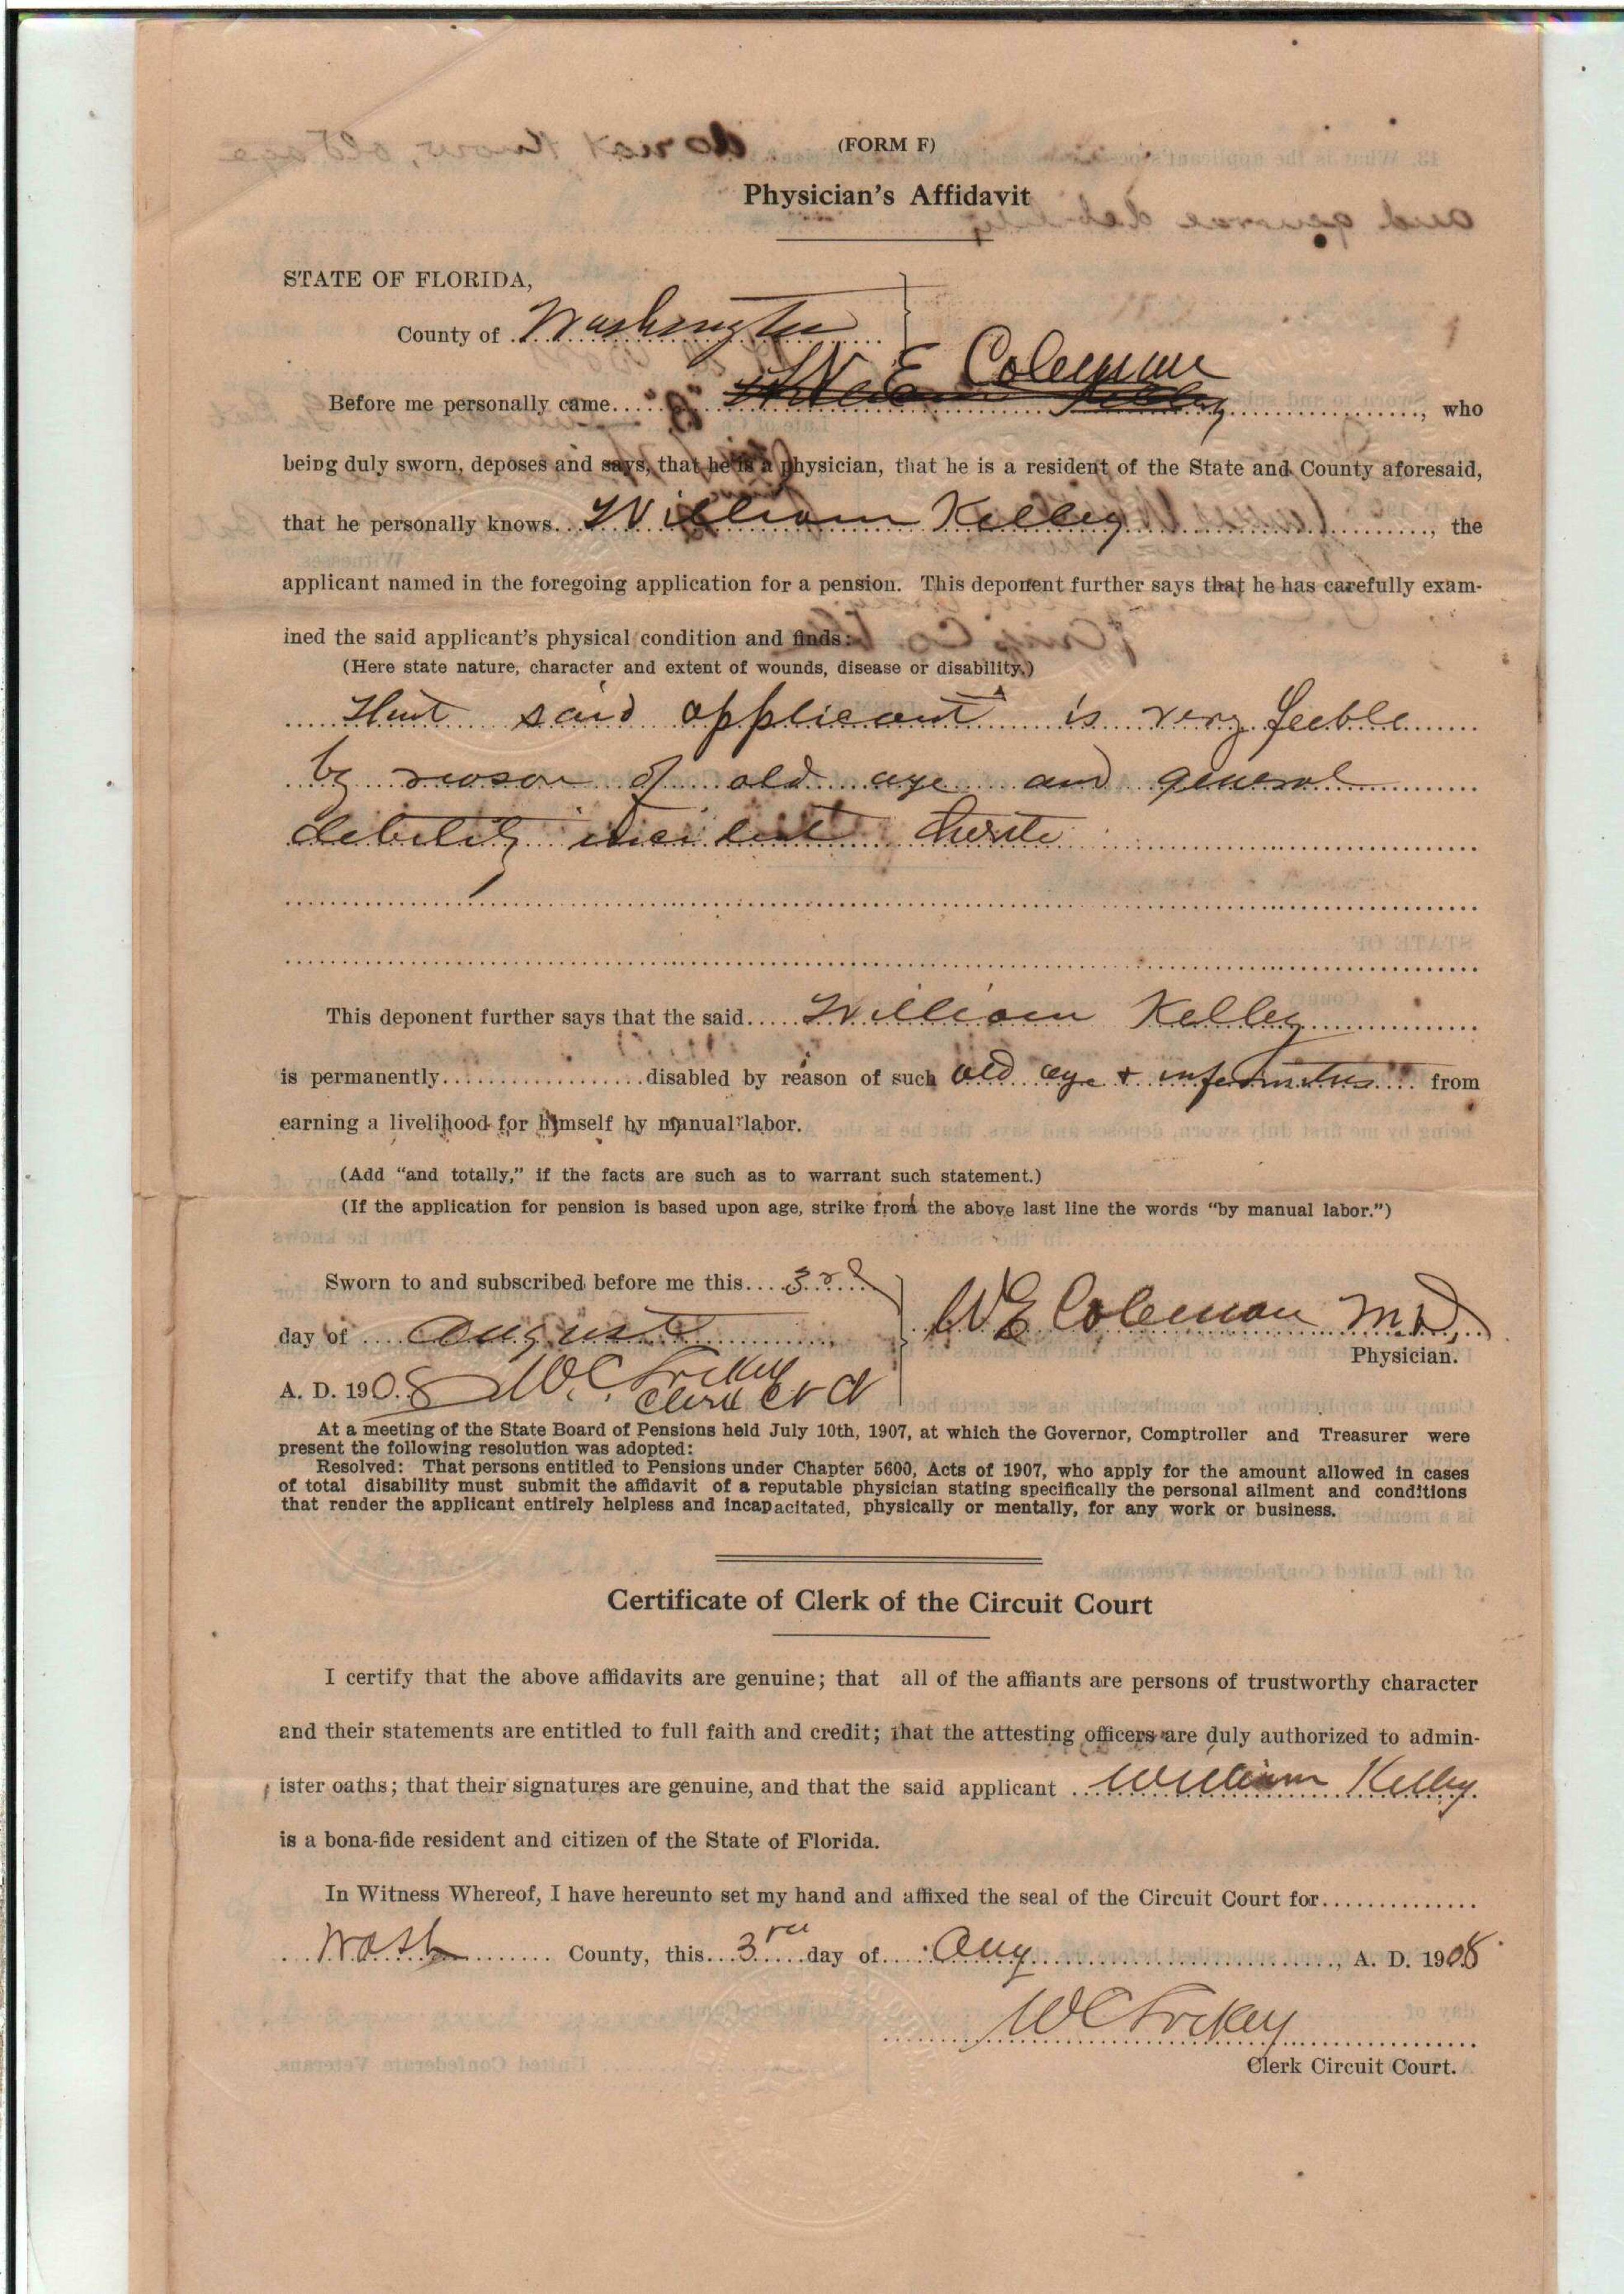 (FORM F)
Physician's Affidavit
STATE OF FLORIDA,
County of Washington
W E Coleman
Before me personally came Kelley, who
being duly sworn, deposes and says, that he is a physician, that he is a resident of the State and County aforesaid,
that he personally knows William Kelley, the
applicant named in the foregoing application for a pension. This deponent further says that he has carefully exam-
ined the said applicant's physical condition and finds:
(Here state nature, character and extent of wounds, disease or disability.)
that said applicant is very feeble
by reason of old age and general
debility incident thereto
This deponent further says that the said William Kelley
is permanently disabled by reason of such old age & infirmities from
earning a livelihood for himself by manual labor.
(Add "and totally," if the facts are such as to warrant such statement.)
(If the application for pension is based upon age, strike from the above last line the words "by manual labor.")
Sworn to and subscribed before me this 3rd
day of August W E Coleman M.D.
Physician.
A. D. 1908 W. C.
Clerk
At a meeting of the State Board of Pensions held July 10th, 1907, at which the Governor, Comptroller and Treasurer were
present the following resolution was adopted:
Resolved: That persons entitled to Pensions under Chapter 5600, Acts of 1907, who apply for the amount allowed in cases
of total disability must submit the affidavit of a reputable physician stating specifically the personal ailment and conditions
that render the applicant entirely helpless and incapacitated, physically or mentally, for any work or business.
Certificate of Clerk of the Circuit Court
I certify that the above affidavits are genuine; that all of the affiants are persons of trustworthy character
and their statements are entitled to full faith and credit; that the attesting officers are duly authorized to admin-
ister oaths; that their signatures are genuine, and that the said applicant William Kelley
is a bona-fide resident and citizen of the State of Florida.
In Witness Whereof, I have hereunto set my hand and affixed the seal of the Circuit Court for
Wash County, this 3rd day of Aug, A. D. 1908
W C
Clerk Circuit Court.